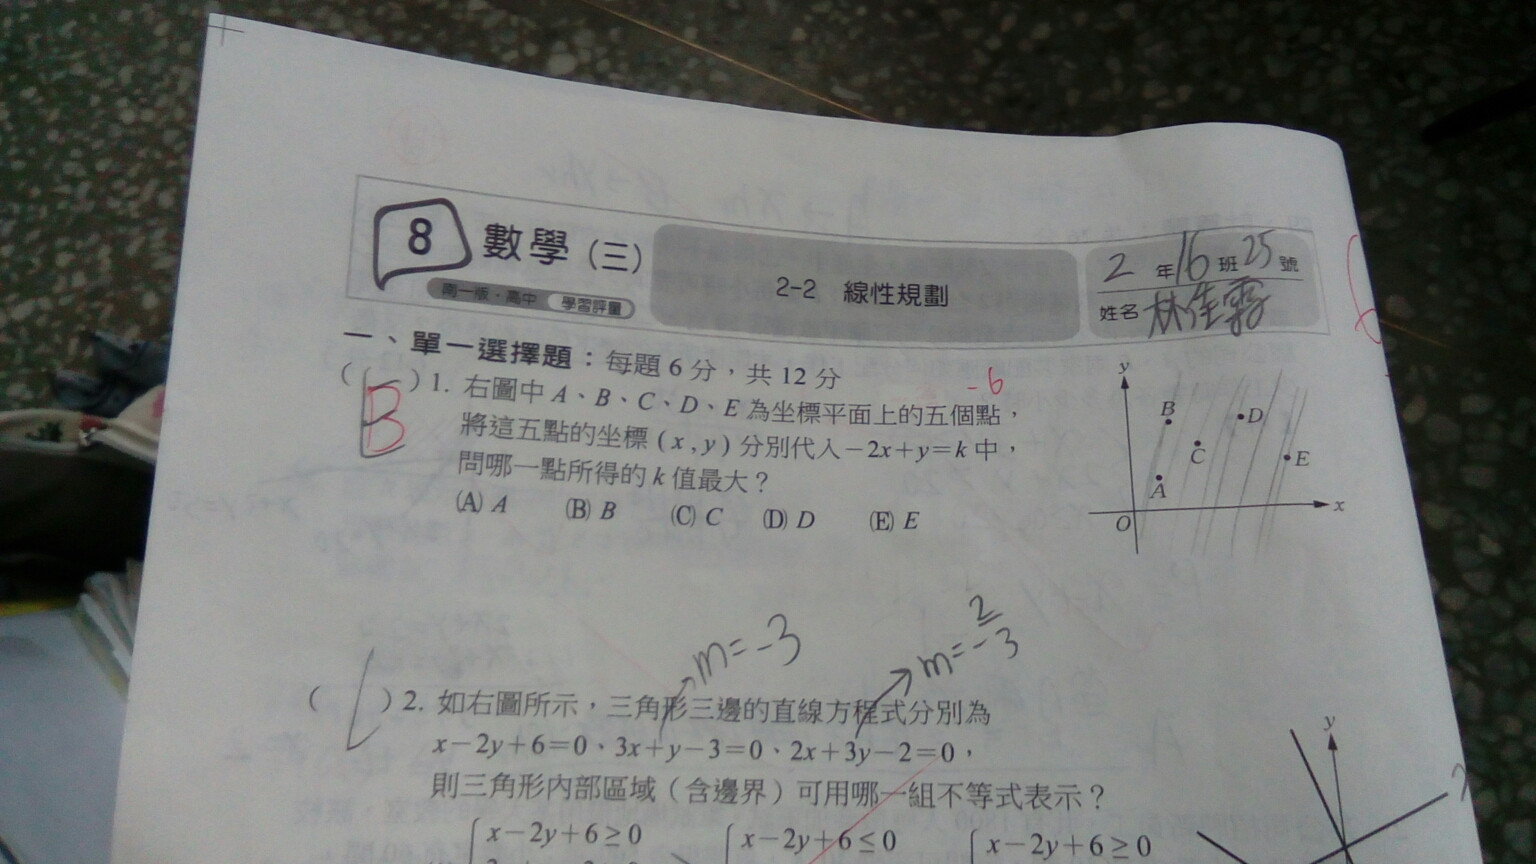 8 數學(三)
南一版．高中 學習評量
2-2 線性規劃
2年16班25號
姓名 林佳霧
一、單一選擇題：每題6分，共12分
-6
(B)1. 右圖中A、B、C、D、E為坐標平面上的五個點，
將這五點的坐標(x,y)分別代入-2x+y=k中，
問哪一點所得的k值最大？
(A) A (B) B (C) C (D) D (E) E
y
B
D
C
E
A
O
x
m=-3
m=-2/3
( )2. 如右圖所示，三角形三邊的直線方程式分別為
x-2y+6=0、3x+y-3=0、2x+3y-2=0，
則三角形內部區域（含邊界）可用哪一組不等式表示？
y
x-2y+6≥0
x-2y+6≤0
x-2y+6≥0